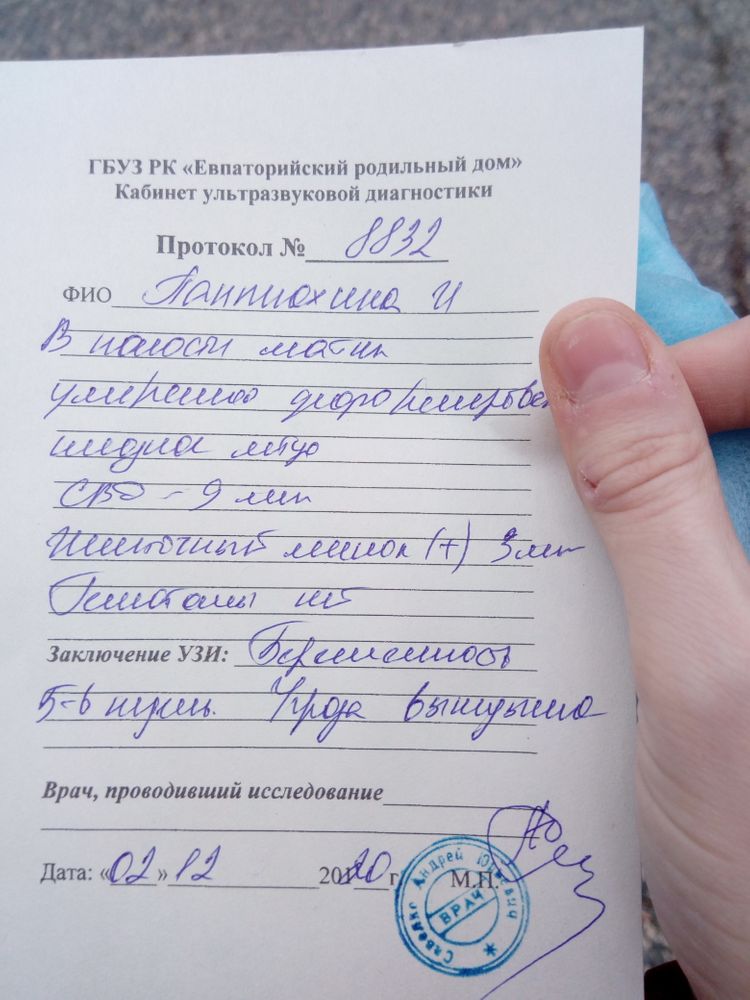 ГБУЗ РК «Евпаторийский родильный дом»
Кабинет ультразвуковой диагностики
Протокол № 8832
ФИО И
В полости матки
умеренно деформирован
СВД - 9 мм
Желточный мешок (+) 3 мм
Гематомы нет
Заключение УЗИ: Беременность
5-6 недель. Угроза выкидыша
Врач, проводивший исследование
Дата: «02» 12 2020 г.
М.П.
Андрей Юрьевич
ВРАЧ